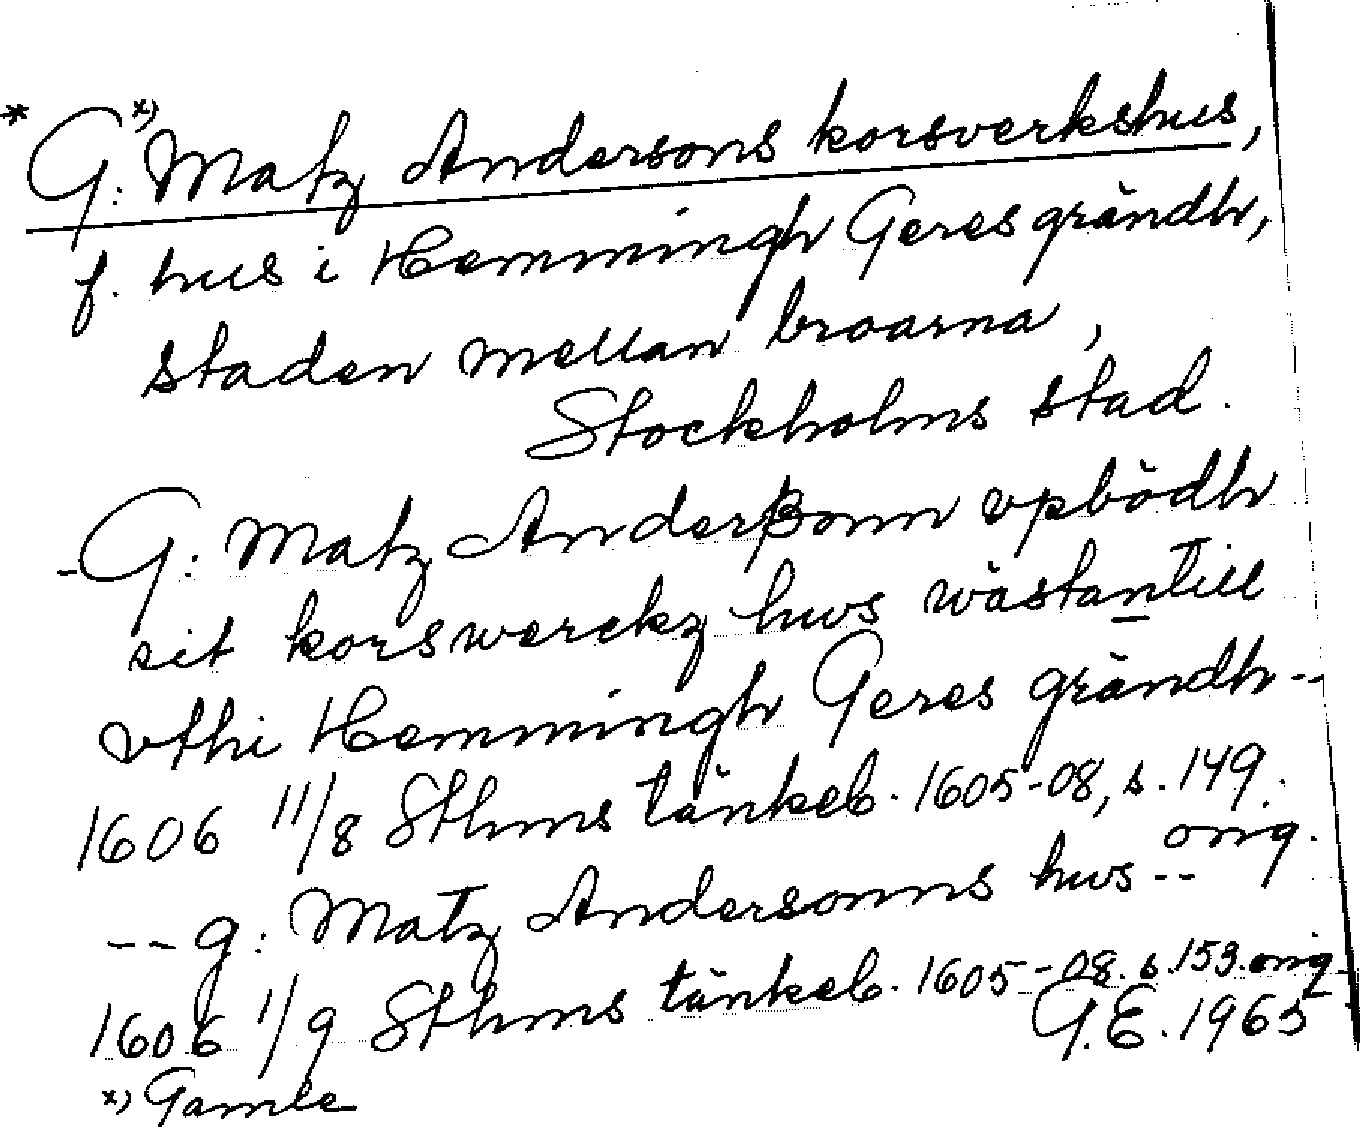 * G:ˣ⁾ Matz Andersons korsverkshus,
f. hus i Hemmingh Geres grändh,
staden mellan broarna,
Stockholms stad.
- G: Matz Anderßonn vpbödh
sit korswerckz hws wästantill
vthi Hemmingh Geres grändh --
1606 11/8 Sthms tänkeb. 1605-08, s. 149.
orig.
-- g: Matz Andersonns hws --
1606 1/9 Sthms tänkeb. 1605-08. s. 153. orig
G.E. 1965
x) Gamle